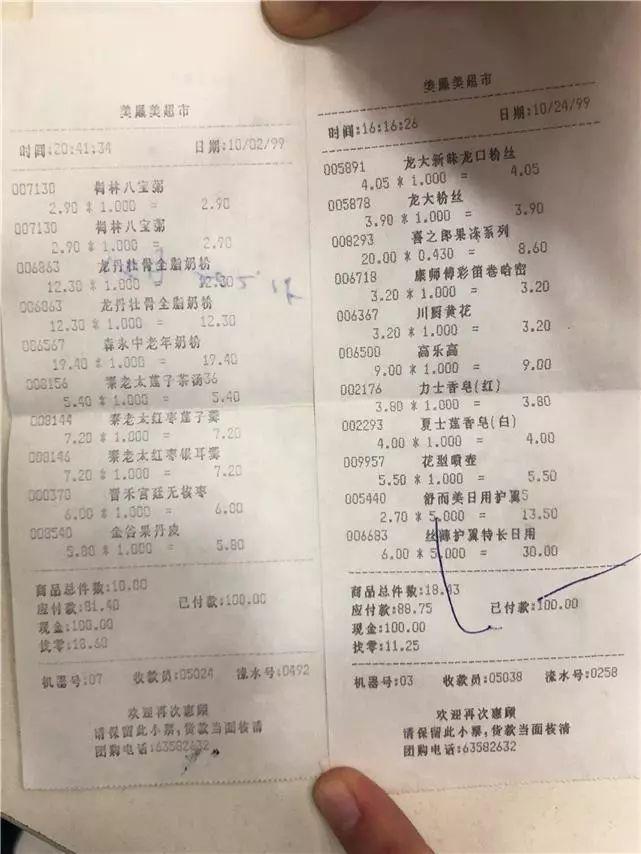 美廉美超市
时间:20:41:34 日期:10/02/99
007130 梅林八宝粥
2.90 * 1.000 = 2.90
007130 梅林八宝粥
2.90 * 1.000 = 2.90
006863 龙丹壮骨全脂奶粉
12.30 * 1.000 = 12.30
006863 龙丹壮骨全脂奶粉
12.30 * 1.000 = 12.30
006567 森永中老年奶粉
19.40 * 1.000 = 19.40
008156 秦老太莲子茶汤36
5.40 * 1.000 = 5.40
008144 秦老太红枣莲子羹
7.20 * 1.000 = 7.20
008146 秦老太红枣银耳羹
7.20 * 1.000 = 7.20
000370 晋禾宫廷无核枣
6.00 * 1.000 = 6.00
008540 金谷果丹皮
5.80 * 1.000 = 5.80
商品总件数:10.00
应付款:81.40 已付款:100.00
现金:100.00
找零:18.60
机器号:07 收款员:05024 流水号:0492
欢迎再次惠顾
请保留此小票,货款当面核清
团购电话:63582632
美廉美超市
时间:16:16:26 日期:10/24/99
005891 龙大新味龙口粉丝
4.05 * 1.000 = 4.05
005878 龙大粉丝
3.90 * 1.000 = 3.90
008293 喜之郎果冻系列
20.00 * 0.430 = 8.60
006718 康师傅彩笛卷哈密
3.20 * 1.000 = 3.20
006367 川厨黄花
3.20 * 1.000 = 3.20
006500 高乐高
9.00 * 1.000 = 9.00
002176 力士香皂(红)
3.80 * 1.000 = 3.80
002293 夏士莲香皂(白)
4.00 * 1.000 = 4.00
009957 花型喷壶
5.50 * 1.000 = 5.50
005440 舒而美日用护翼5
2.70 * 5.000 = 13.50
006683 丝薄护翼特长日用
6.00 * 5.000 = 30.00
商品总件数:18.43
应付款:88.75 已付款:100.00
现金:100.00
找零:11.25
机器号:03 收款员:05038 流水号:0258
欢迎再次惠顾
请保留此小票,货款当面核清
团购电话:63582632